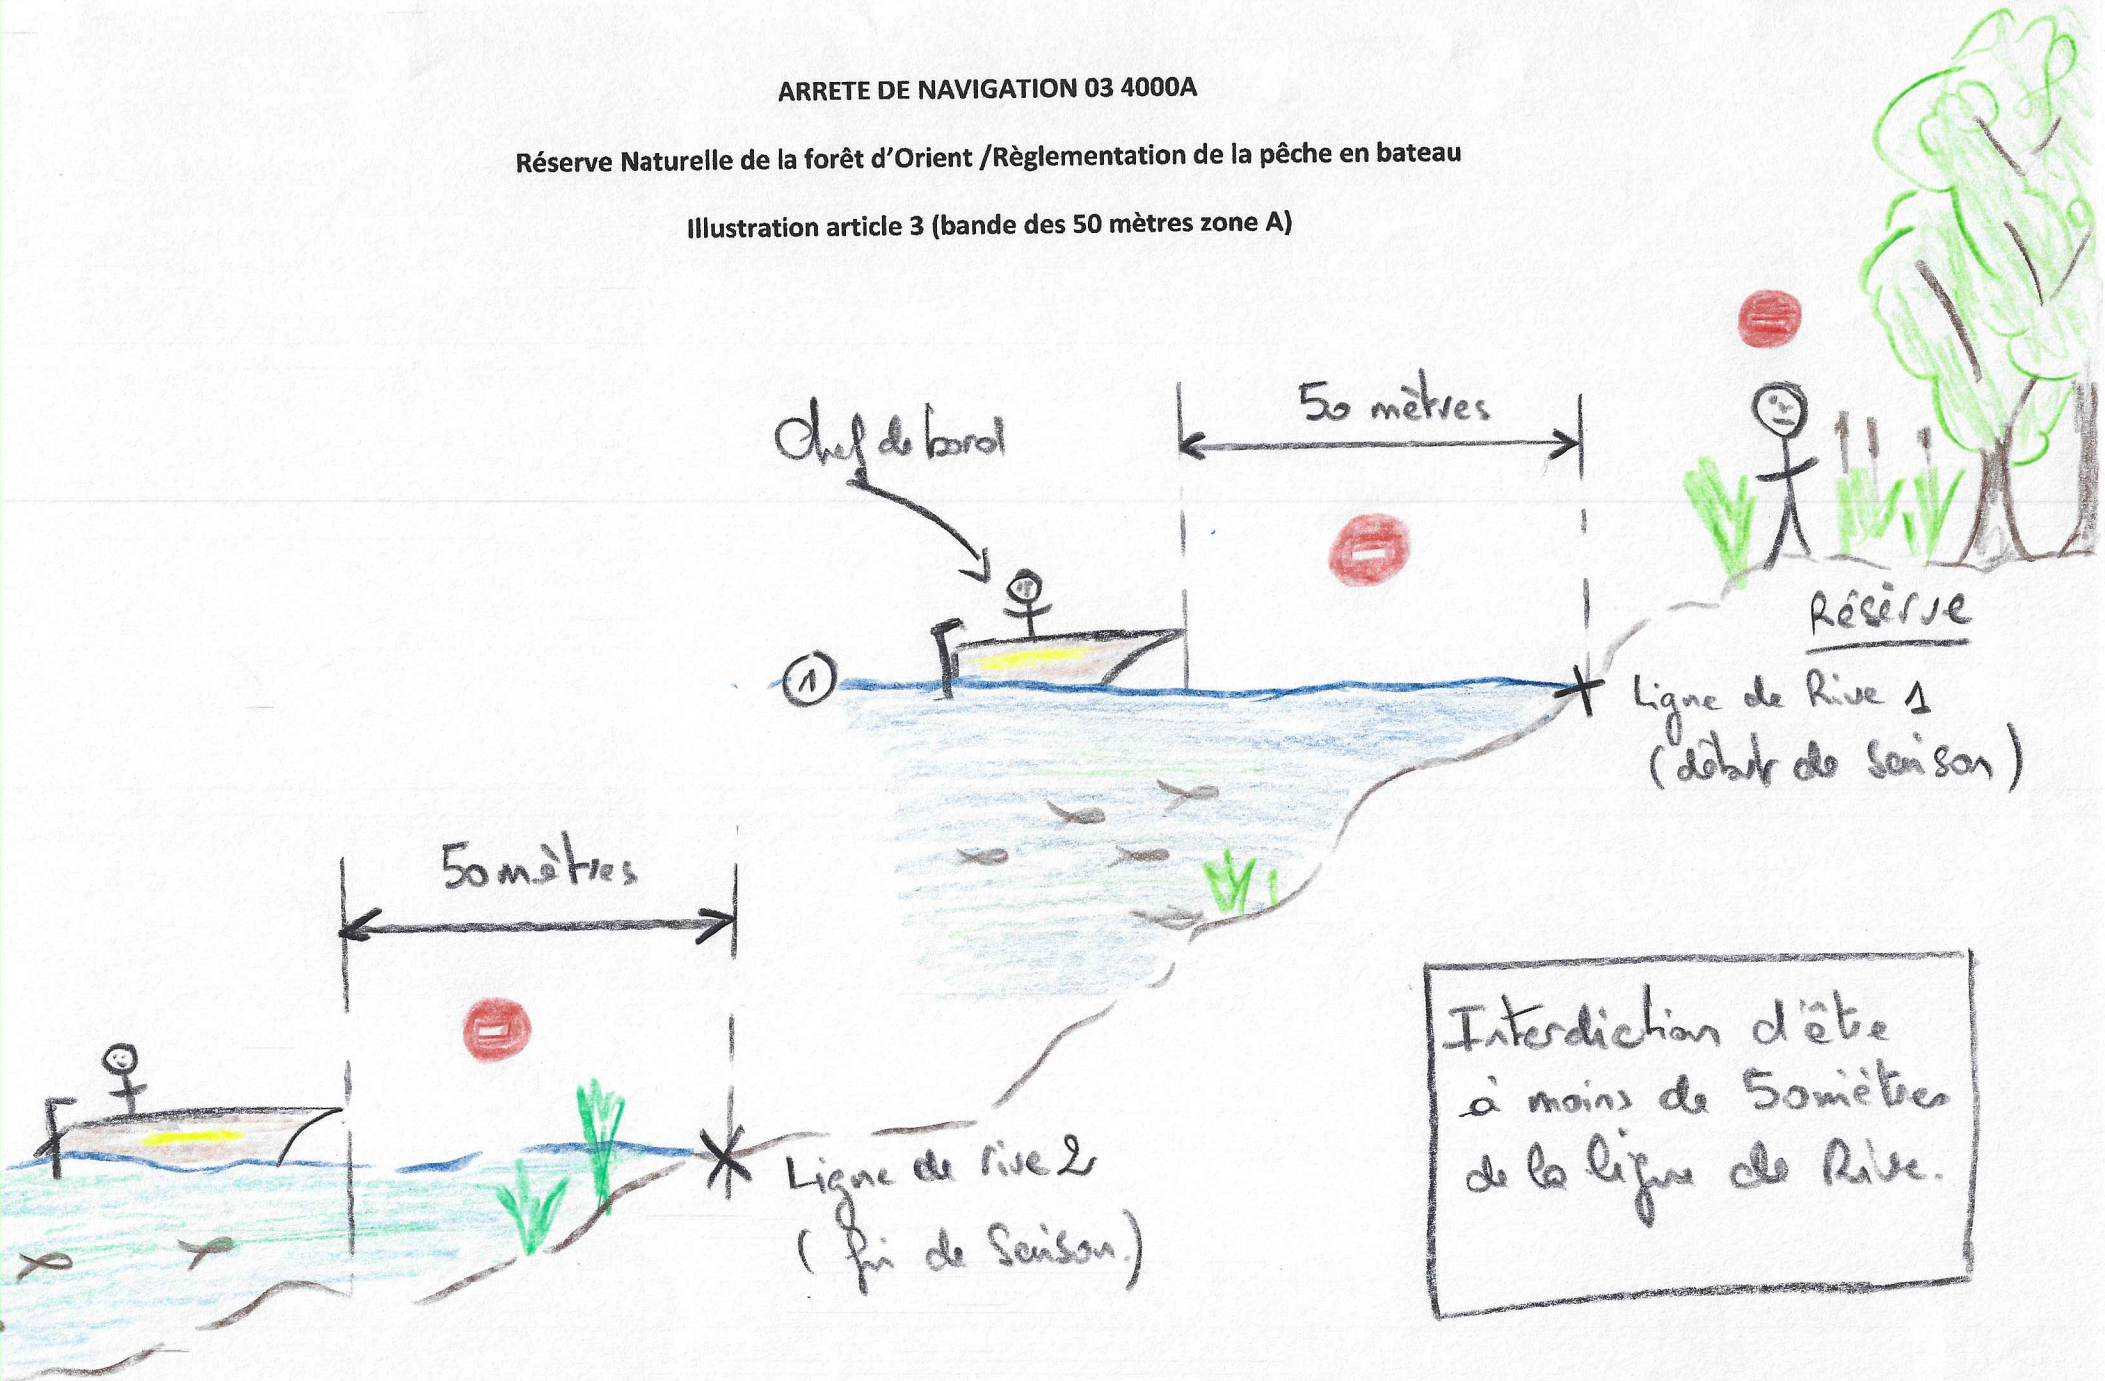 ARRETE DE NAVIGATION 03 4000A
Réserve Naturelle de la forêt d'Orient /Règlementation de la pêche en bateau
Illustration article 3 (bande des 50 mètres zone A)
50 mètres
Chef de bord
Réserve
1
Ligne de Rive 1
(début de saison)
50 mètres
Ligne de rive 2
(fin de saison.)
Interdiction d'être
à moins de 50 mètres
de la ligne de Rive.